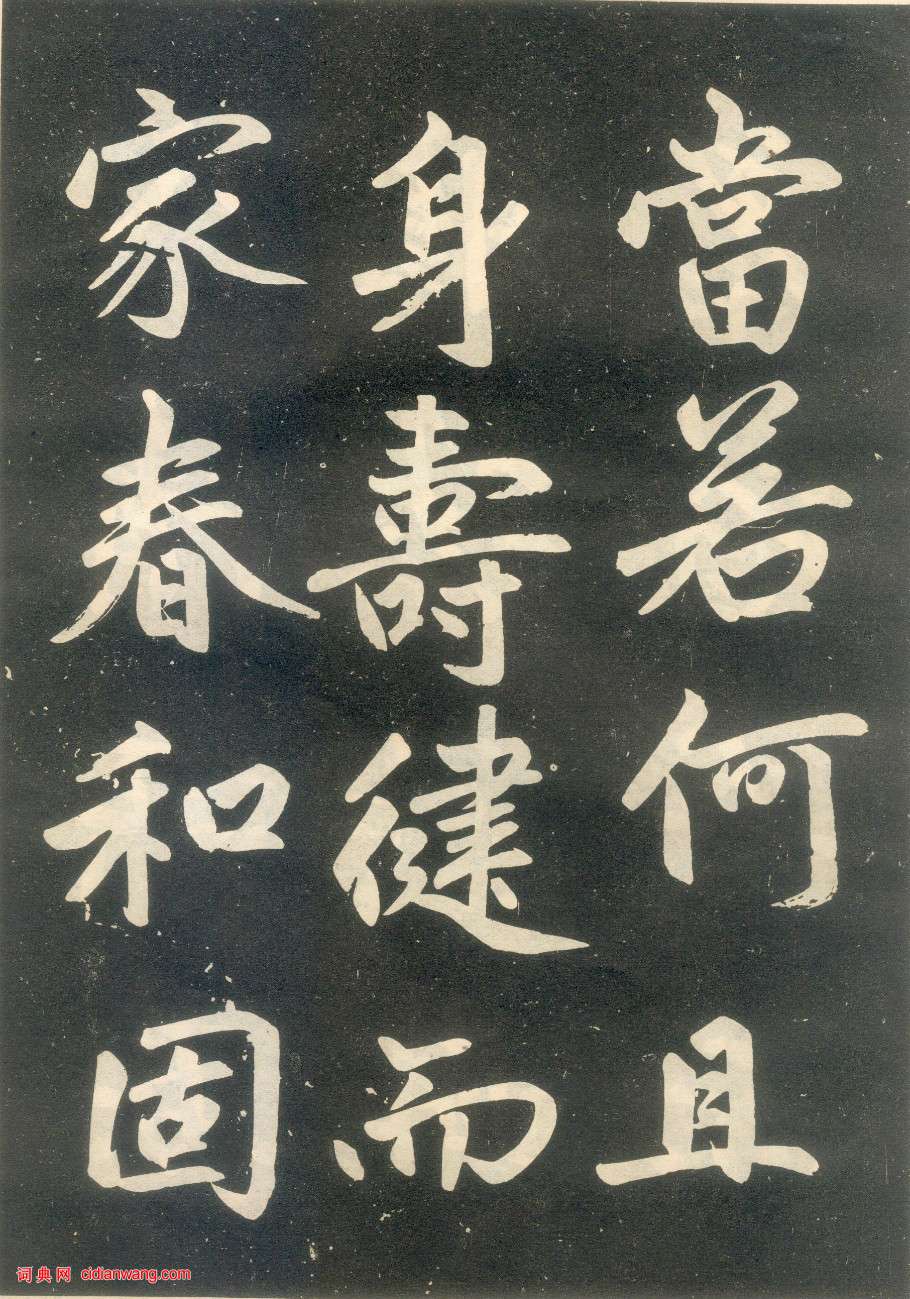 當若何且
身壽健而
家春和固
词典网 cidianwang.com